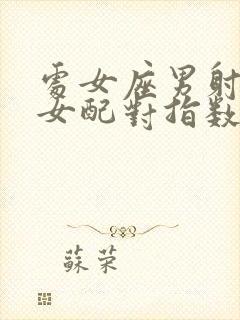 處女座男射
女配對指數
蘇荣